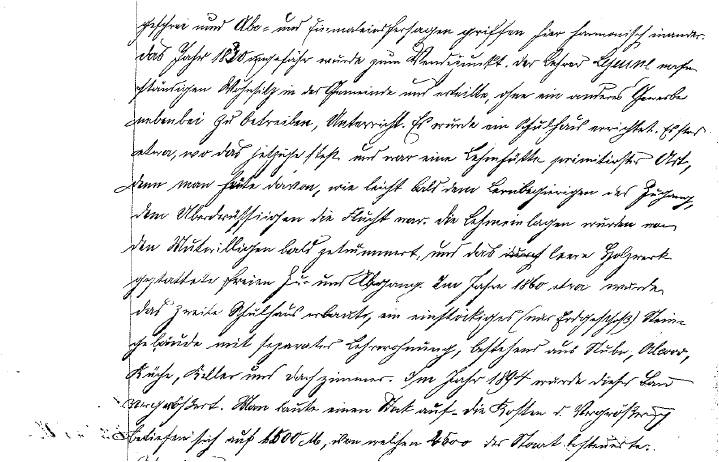 geschrei und Abc- und Einmaleinshersagen griffen hier harmonisch inander.
das Jahr 1830 ungefähr wurde zum Wendepunkt. der Lehrer nahm
ständigen Wohnsitz in der Gemeinde und erteilte, ohne ein anderes Gewerbe
nebenbei zu betreiben, Unterricht. Es wurde ein Schulhaus errichtet. Es stand
etwa, wo das jetzige steht und war eine Lehmhütte primitivster Art,
denn man heute davon, wie leicht bald dem Lernbegierigen der Zugang,
dem Überdrüssigen die Flucht war. die Lehmeinlagen wurden von
den Mutwilligen bald zertrümmert, und das leere Holzwerk
gestattete freien Zu- und Abgang. Im Jahre 1860 etwa wurde
das zweite Schulhaus erbaut, ein einstöckiges (nur Erdgeschoß) Stein-
gebäude mit separater Lehrerwohnung, bestehend aus Stube,
Küche, Keller und Dachzimmer. Im Jahr 1894 wurde dieser Bau
vergrößert. Man baute einen Stock auf. die Kosten d. Vergrößerung
beliefen sich auf 6500 M, von welchen der Staat beisteuerte.